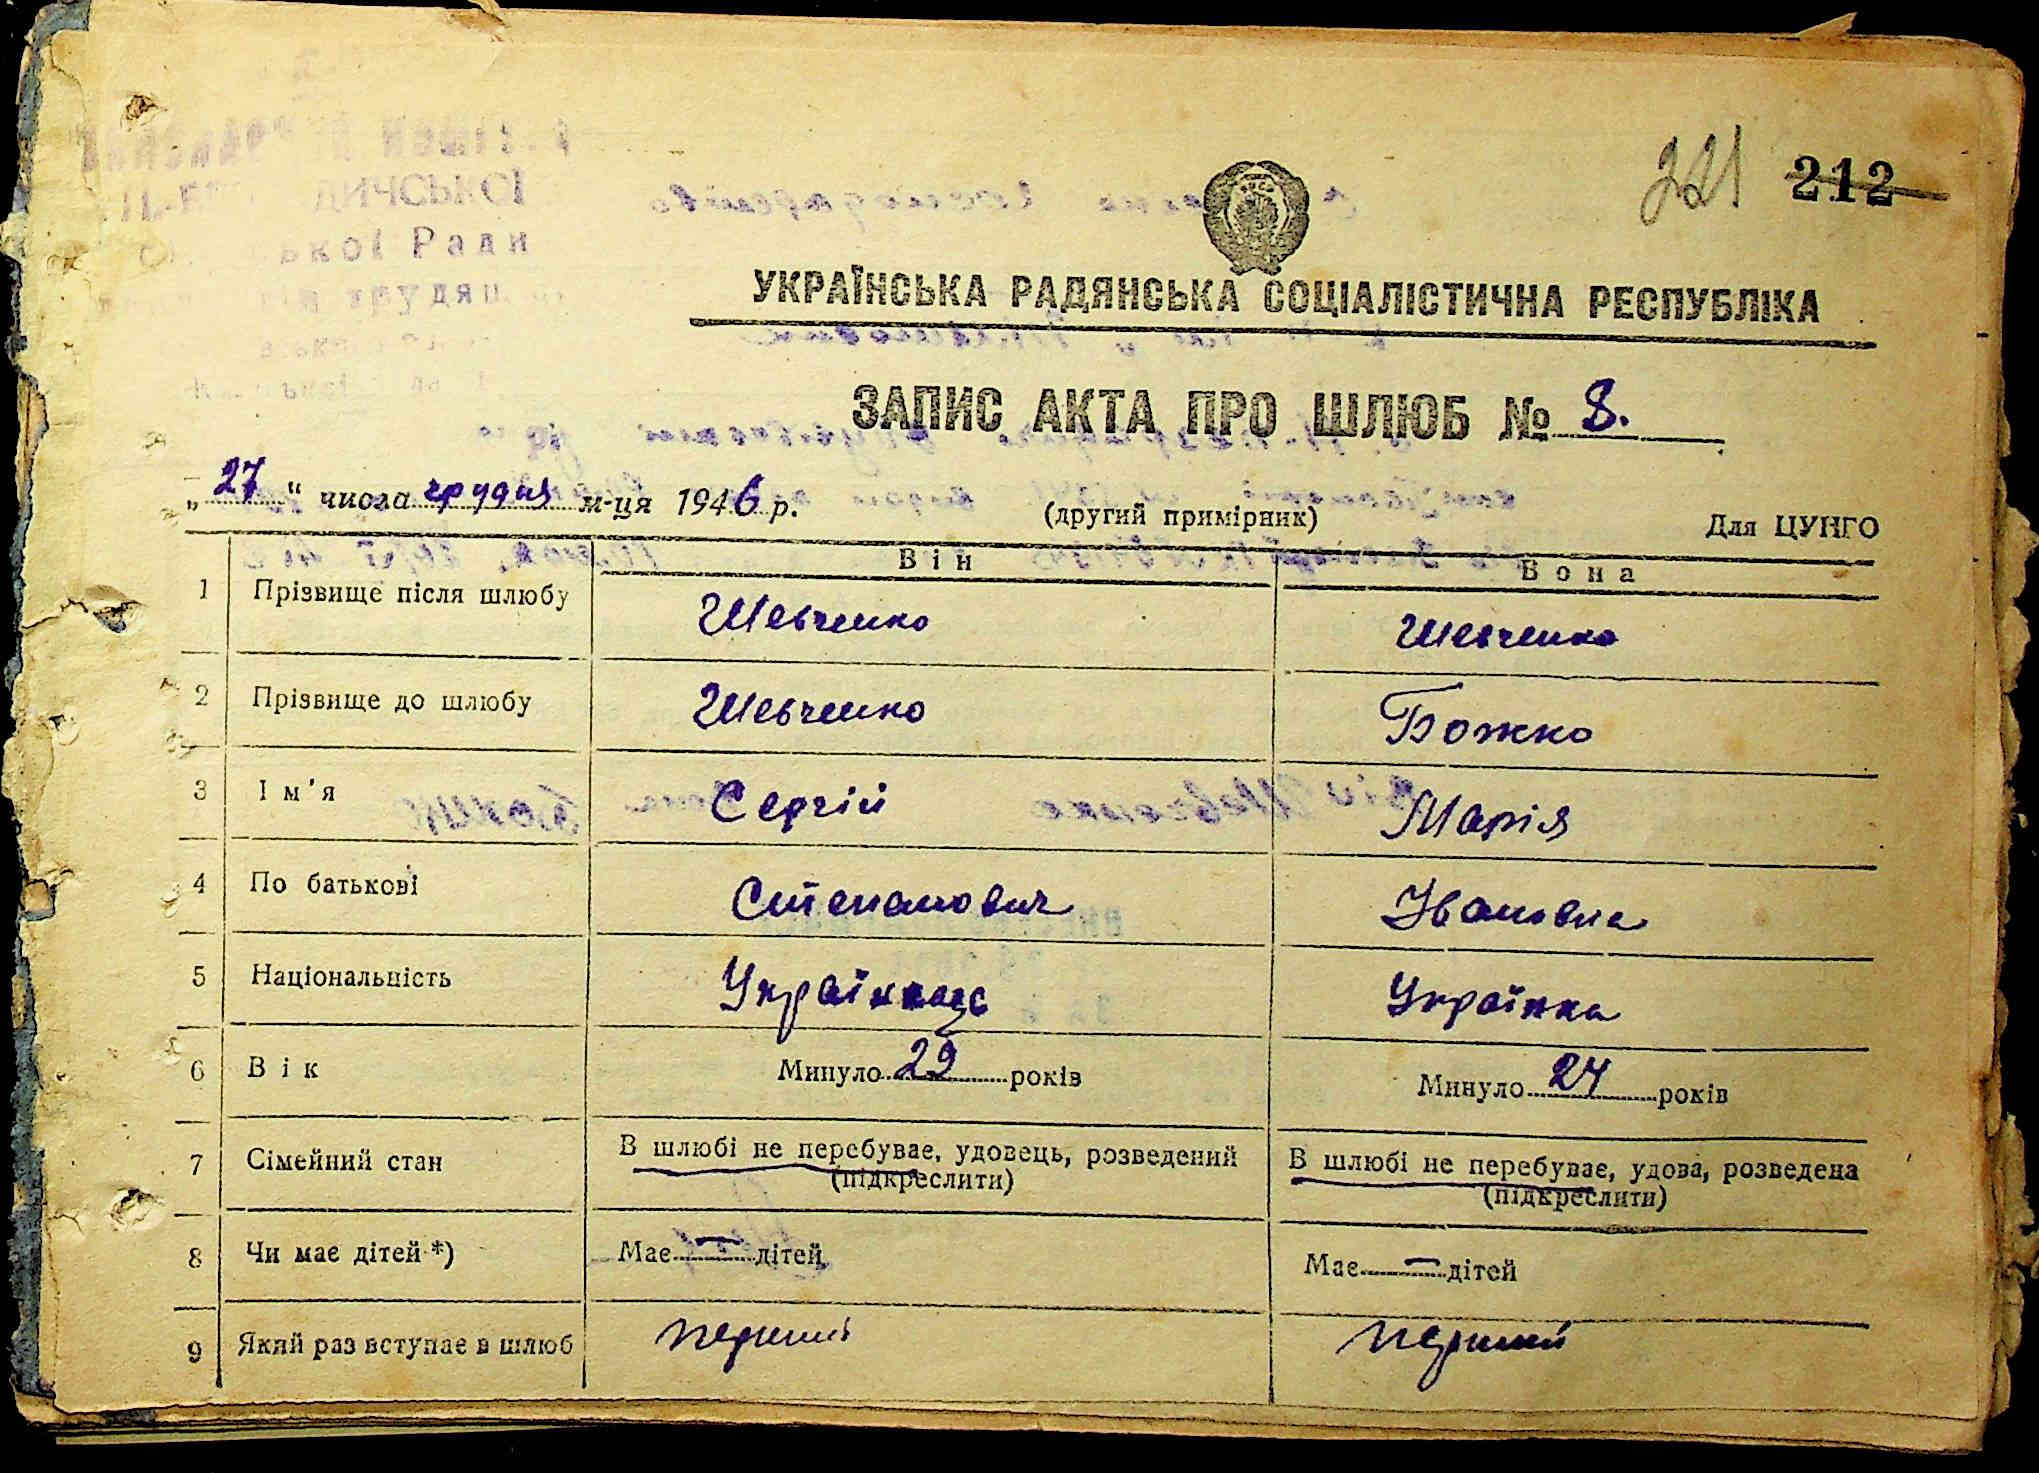 221 212
УКРАЇНСЬКА РАДЯНСЬКА СОЦІАЛІСТИЧНА РЕСПУБЛІКА
ЗАПИС АКТА ПРО ШЛЮБ № 8.
„27" числа грудня м-ця 1946 р. (другий примірник) Для ЦУНГО
Він Вона
1 Прізвище після шлюбу Шевченко Шевченко
2 Прізвище до шлюбу Шевченко Божко
3 Ім'я Сергій Марія
4 По батькові Степанович Ивановна
5 Національність Українець Українка
6 Вік Минуло 29 років Минуло 24 років
7 Сімейний стан В шлюбі не перебуває, удовець, розведений (підкреслити) В шлюбі не перебуває, удова, розведена (підкреслити)
8 Чи має дітей *) Має — дітей Має — дітей
9 Який раз вступає в шлюб перший перший